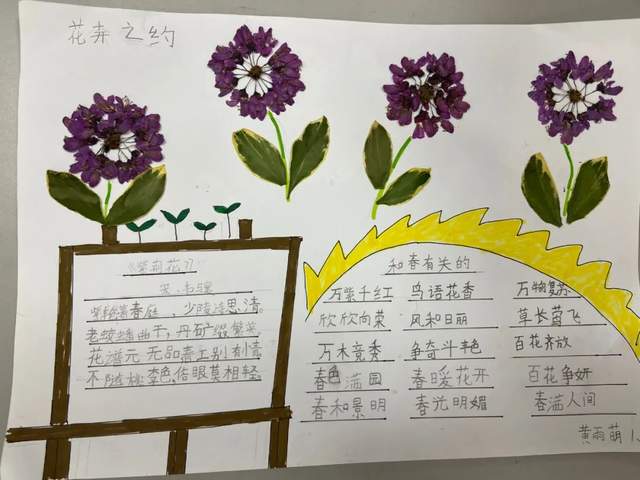 花卉之约
《紫荆花》
春庭,少陵 思清
老 蟠曲干,丹矿缀繁英
花谱元无品, 别有情
不随桃李色,俗眼莫相轻
和春有关的
万紫千红 鸟语花香 万物复苏
欣欣向荣 风和日丽 草长莺飞
万木竞秀 争奇斗艳 百花齐放
春色满园 春暖花开 百花争妍
春和景明 春光明媚 春满人间
黄雨萌